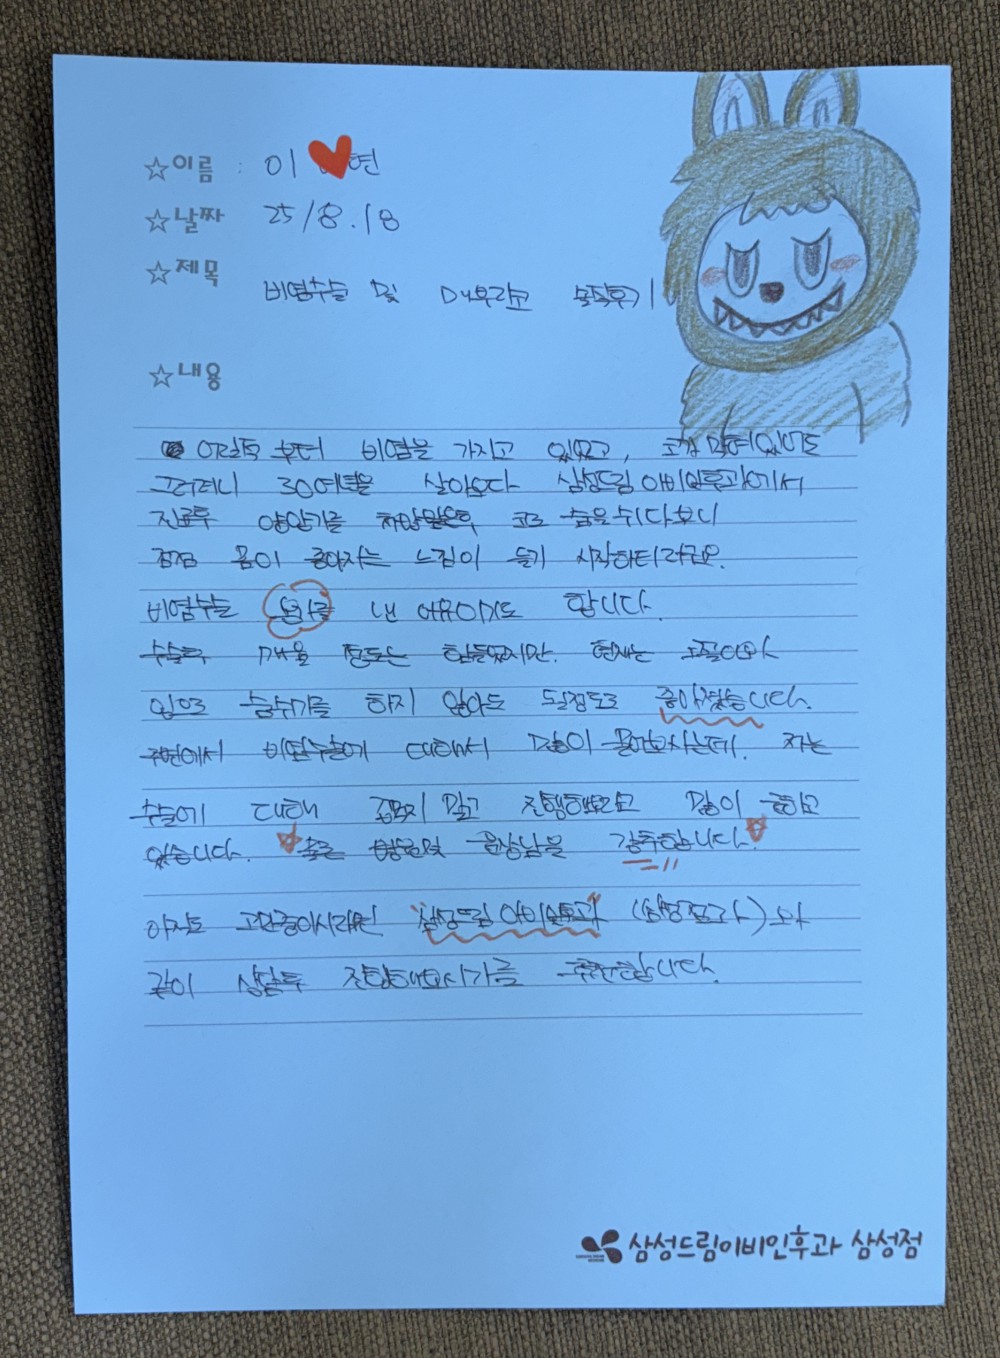 ☆이름 : 이 ♥연
☆날짜 25/8.18
☆제목
비염수술 및 솔직후기
☆내용
어려서 부터 비염을 가지고 있었고, 코가 막혀있어도
그러려니 30여년을 살아오다 삼성드림이비인후과에서
진료후 양압기를 처방받은후 코로 숨을 쉬다보니
점점 몸이 좋아지는 느낌이 들기 시작하더라구요.
비염수술 용기를 낸 이유이기도 합니다.
수술후 정도는 힘들었지만. 현재는 코풀이와
입으로 숨쉬기를 하지 않아도 될정도로 좋아졌습니다.
주변에서 비염수술에 대해서 많이 물어보시는데. 저는
수술에 대해 겁먹지 말고 진행해보라고 많이 권하고
있습니다. 좋은 병원및 원장님을 강추합니다.
아직도 고민중이시라면 "삼성드림 이비인후과" (삼성점) 와
같이 상담후 진행해보시기를 추천합니다.
삼성드림이비인후과 삼성점